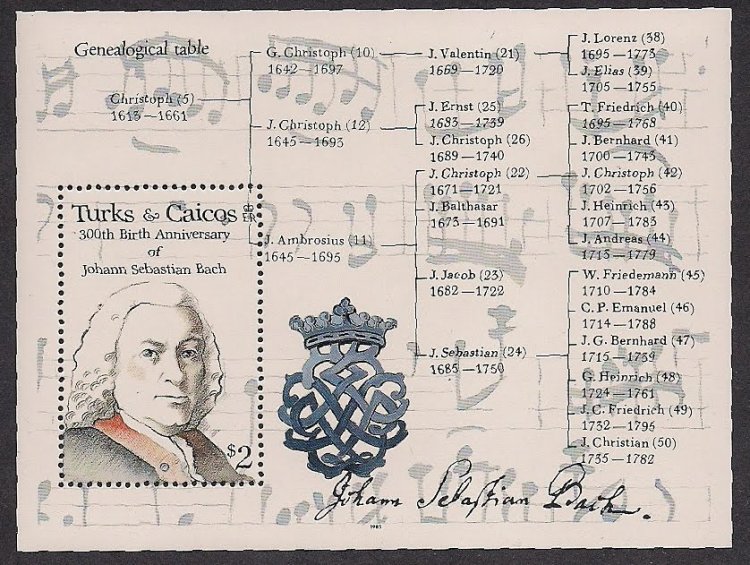 Genealogical table
Christoph (5)
1613—1661
G. Christoph (10)
1642—1697
J. Christoph (12)
1645—1693
J. Ambrosius (11)
1645—1695
J. Valentin (21)
1669—1720
J. Ernst (25)
1683—1739
J. Christoph (26)
1689—1740
J. Christoph (22)
1671—1721
J. Balthasar
1673—1691
J. Jacob (23)
1682—1722
J. Sebastian (24)
1685—1750
J. Lorenz (38)
1695—1773
J. Elias (39)
1705—1755
T. Friedrich (40)
1695—1768
J. Bernhard (41)
1700—1743
J. Christoph (42)
1702—1756
J. Heinrich (43)
1707—1783
J. Andreas (44)
1713—1779
W. Friedemann (45)
1710—1784
C. P. Emanuel (46)
1714—1788
J. G. Bernhard (47)
1715—1739
G. Heinrich (48)
1724—1761
J. C. Friedrich (49)
1732—1795
J. Christian (50)
1735—1782
Turks & Caicos
E II R
300th Birth Anniversary
of
Johann Sebastian Bach
$2
Johann Sebastian Bach.
1985